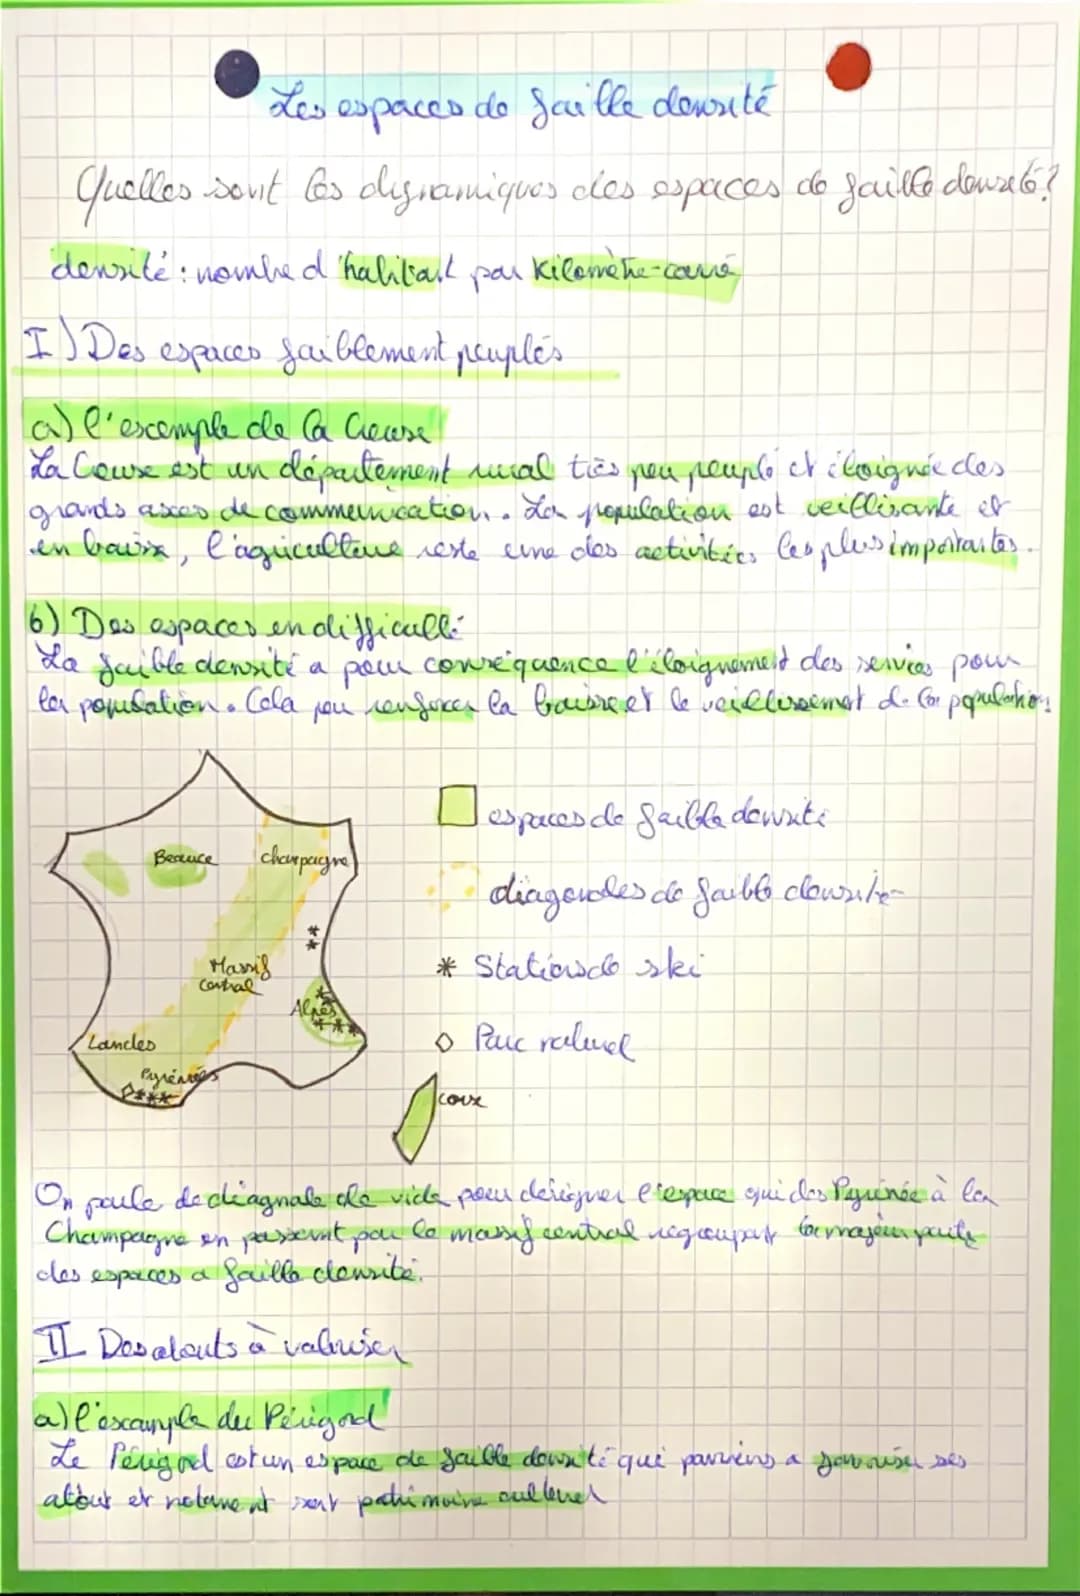 Les espaces de faible densité
Quelles sont les dynamiques des espaces de faible densité?
densité : nombre d'habitant par kilomètre-carré
I) Des espaces faiblement peuplés
a) l'escemple de la Creuse
La Creuse est un département rural très peu peuplé et éloignée des
grands axes de communication. La population est veillisante et
en baisse, l'agriculture reste une des activitées les plus importantes.
b) Des espaces en difficulté
La faible densité a pour conséquence l'éloignement des services pour
la population. Cela peu renforcer la baisse et le veillissement de la population.
Beauce
Champagne
espaces de faible densité
diagonales de faible densité
Massif
central
* Stations de ski
Alpes
Landes
◊ Parc naturel
Pyrénées
corse
On parle de diagnale de vide pour désigner l'espace qui des Pyrénée à la
Champagne en passent par le massif central regroupant la majeur partie
des espaces a faible densité.
II Des atouts à valoriser
a) l'escample du Périgord
Le Périgord est un espace de faible densité qui parviens a favoriser ses
atout et notament sont patrimoine culturel